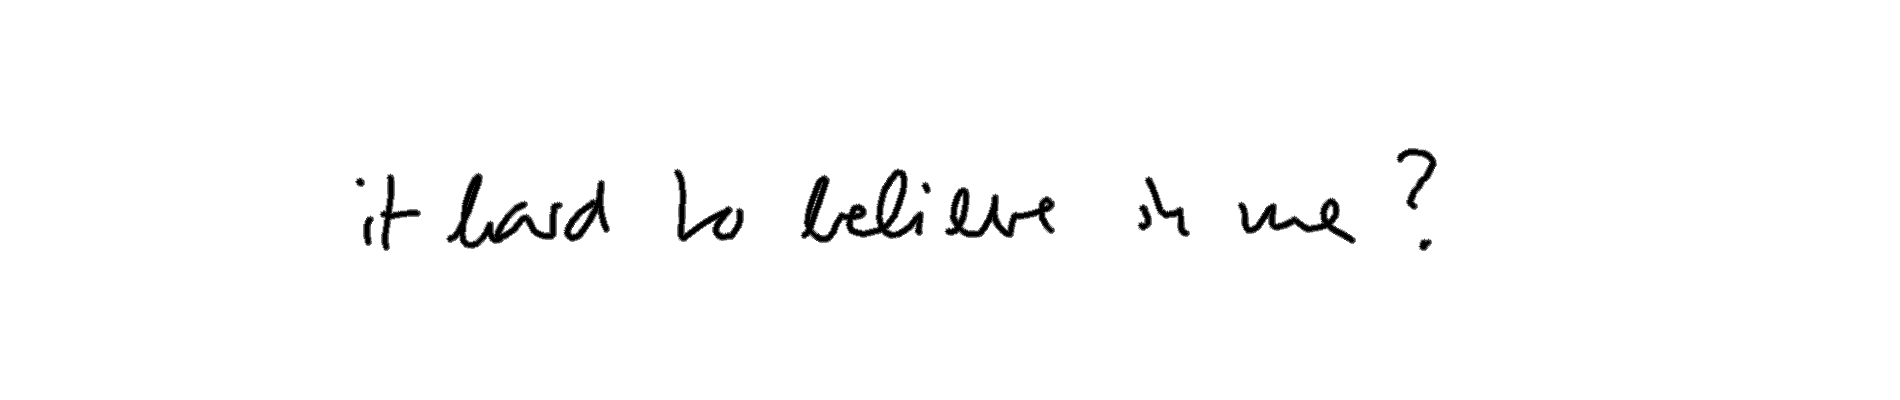 it hard to believe in me ?